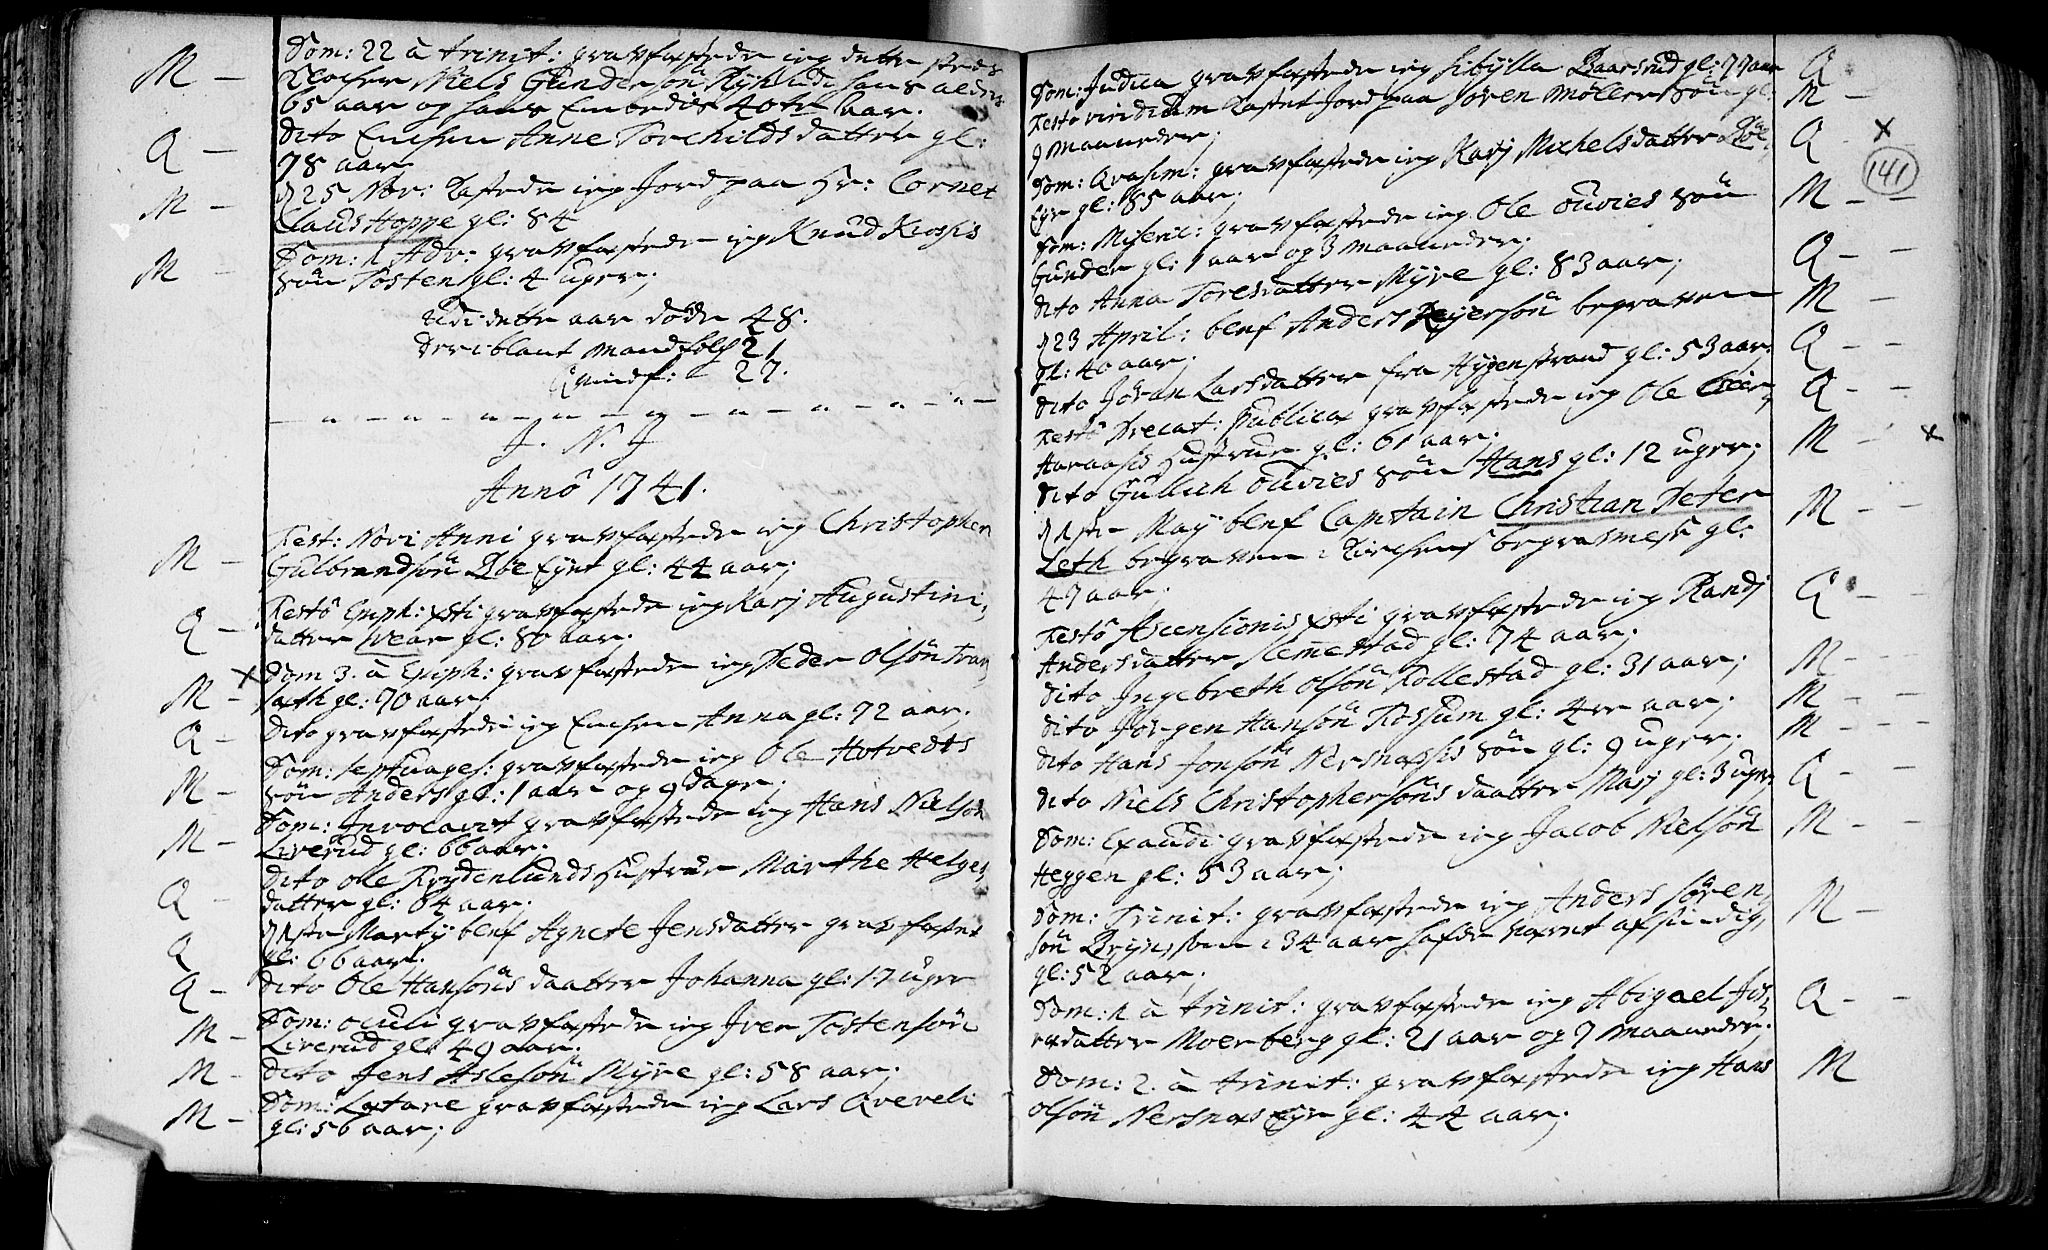 M - Dom: 22 à trinit: gravfæstede ieg dette steds
Klocher Niels Gunderson Nyhuud: hans alder
65 aar og hans Embedis 40tr aar.
Q - Dito Enchen Anne Torchildsdatter gl:
78 aar
M - d 25 Nov: Kastede ieg Jord paa Hr: Cornet
Claus Hoppe gl: 84
M - Dom: 1 Adv: gravfæstede ieg Knud Krogsis
søn Tosten gl: 4 uger;
Udi dette aar døde 48.
Deriblant mandfolch 21
Qvindf: 27.
J. N. J
Annô 1741.
M - Fest: Novi Anni gravfæstede ieg Christopher
Gulbrandsøn Bøe Eyet gl: 44 aar;
Q - Festô Epiph: Xsti gravfæstede ieg Karj Augustini,
datter gl: 80 aar.
M - x Dom 3. à Epiph: gravfæstede ieg Peder Olsøn Tran,
gl: 70 aar.
Q - Dito gravfæstede ieg Enchen Anna gl: 72 aar.
M - Dom: septuages: gravfæstede ieg Ole Hotvedts
søn Anders gl: 1 aar og 9 Dage;
M - Dom: Invocavit gravfæstede ieg Hans Nielsøn
Liverud gl: 66 aar.
Q - Dito Ole Røydenlunds Hustrue Marthe Helges,
datter gl: 64 aar.
Q d 1ste Martij blef Agnete Jensdatter gravfæstet
gl: 66 aar.
Q - Dito Ole Hansøns daatter Johanna gl: 17 uger
M - Dom: oculi gravfæstede ieg Iver Tostensøn
Liverud gl: 49 aar.
M - Dito Jens Aslesøn Myre gl: 58 aar;
M - Dom: Lætare gravfæstede ieg Lars Qverveli
gl: 56 aar;
Dom: Judica gravfæstede ieg Sibÿlla Baarsrud gl: 77 aar Q
Festo viridium Kastet Jord paa Søren Møllers søn gl: M -
9 Maaneder; Q - x
Dom: Qvasim: gravfæstede ieg Karj Michelsdatter Bøe,
141
Eye gl: 85 aar;
Dom: Miseric: gravfæstede ieg Ole ouvies søn M - -
Gunder gl: 1 aar og 3 maaneder;
Dito Anna Toresdatter Myre gl: 83 aar; Q - -
d 23 April: blef Anders Reÿersøn begraven M -
gl: 40 aar;
Dito Jøran Larsdatter fra Hÿgenstrand gl: 53 aar. Q - -
Festô Precat: Publicæ gravfæstede ieg Ole Q - -
Hustrue gl: 61 aar;
Dito Gullich ouvies søn Hans gl: 12 uger; M - x
d 1ste Maÿ blef Captain Christian Peter M - -
Leth begraven i Kirchens begravnelse gl:
47 aar;
Festô Ascensionis Xsti gravfæstede ieg Randj Q -
Andersdatter Slemestad gl: 74 aar;
Dito Ingebreth olsøn Rollestad gl: 31 aar; M - -
Dito Jørgen Hansøn Rossum gl: 4re aar; M - -
Dito Hans Jonsøn Nersnæssis søn gl: 9 uger; M - -
Dito Niels Christophersøns daatter Marj gl: 3 uger Q - -
Dom: Exaudi gravfæstede ieg Jacob Nielsøn M - -
Heggen gl: 53 aar;
Dom: Trinit: gravfæstede ieg Anders Søren, M -
søn Bryn, som i 34 aar hafde været afsindig,
gl: 52 aar;
Dom: 1 à trinit: gravfæstede ieg Abigael Q - -
datter Moerberg gl: 21 aar og 7 maaneder.
Dom: 2. à trinit: gravfæstede ieg Hans M
olsøn Nersnæs Eye gl: 44 aar;